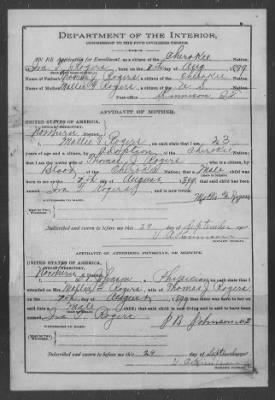 DEPARTMENT OF THE INTERIOR,
COMMISSION TO THE FIVE CIVILIZED TRIBES.
IN RE Application for Enrollment, as a citizen of the Cherokee Nation,
Ira T. Rogers born on the day of Aug 1899
Name of Father: Thomas J. Rogers a citizen of the Cherokee Nation.
Name of Mother: Mollie E. Rogers a citizen of the U S Nation.
AFFIDAVIT OF MOTHER.
UNITED STATES OF AMERICA,
INDIAN TERRITORY,
Northern District.
I, Mollie E. Rogers, on oath state that I am 23
years of age and a citizen, by Adoption, of the Cherokee Nation;
that I am the lawful wife of Thomas J. Rogers, who is a citizen, by
Blood, of the Cherokee Nation; that a Male child
was born to me on day of August
Ira T. Rogers
WITNESSES TO MARK:
Subscribed and sworn to before me this 29 day of September
NOTARY PUBLIC.
AFFIDAVIT OF ATTENDING PHYSICIAN, OR MIDWIFE.
UNITED STATES OF AMERICA,
INDIAN TERRITORY,
Northern District.
I, Johnson, a Physician, on oath state that I
attended on Mrs. Mollie E. Rogers, wife of Thomas J. Rogers
on the day of August
Male child; that said child is now living and is said to have been
named Ira T. Rogers
J B Johnson M D
WITNESSES TO MARK:
Subscribed and sworn to before me this 29 day of September
NOTARY PUBLIC.